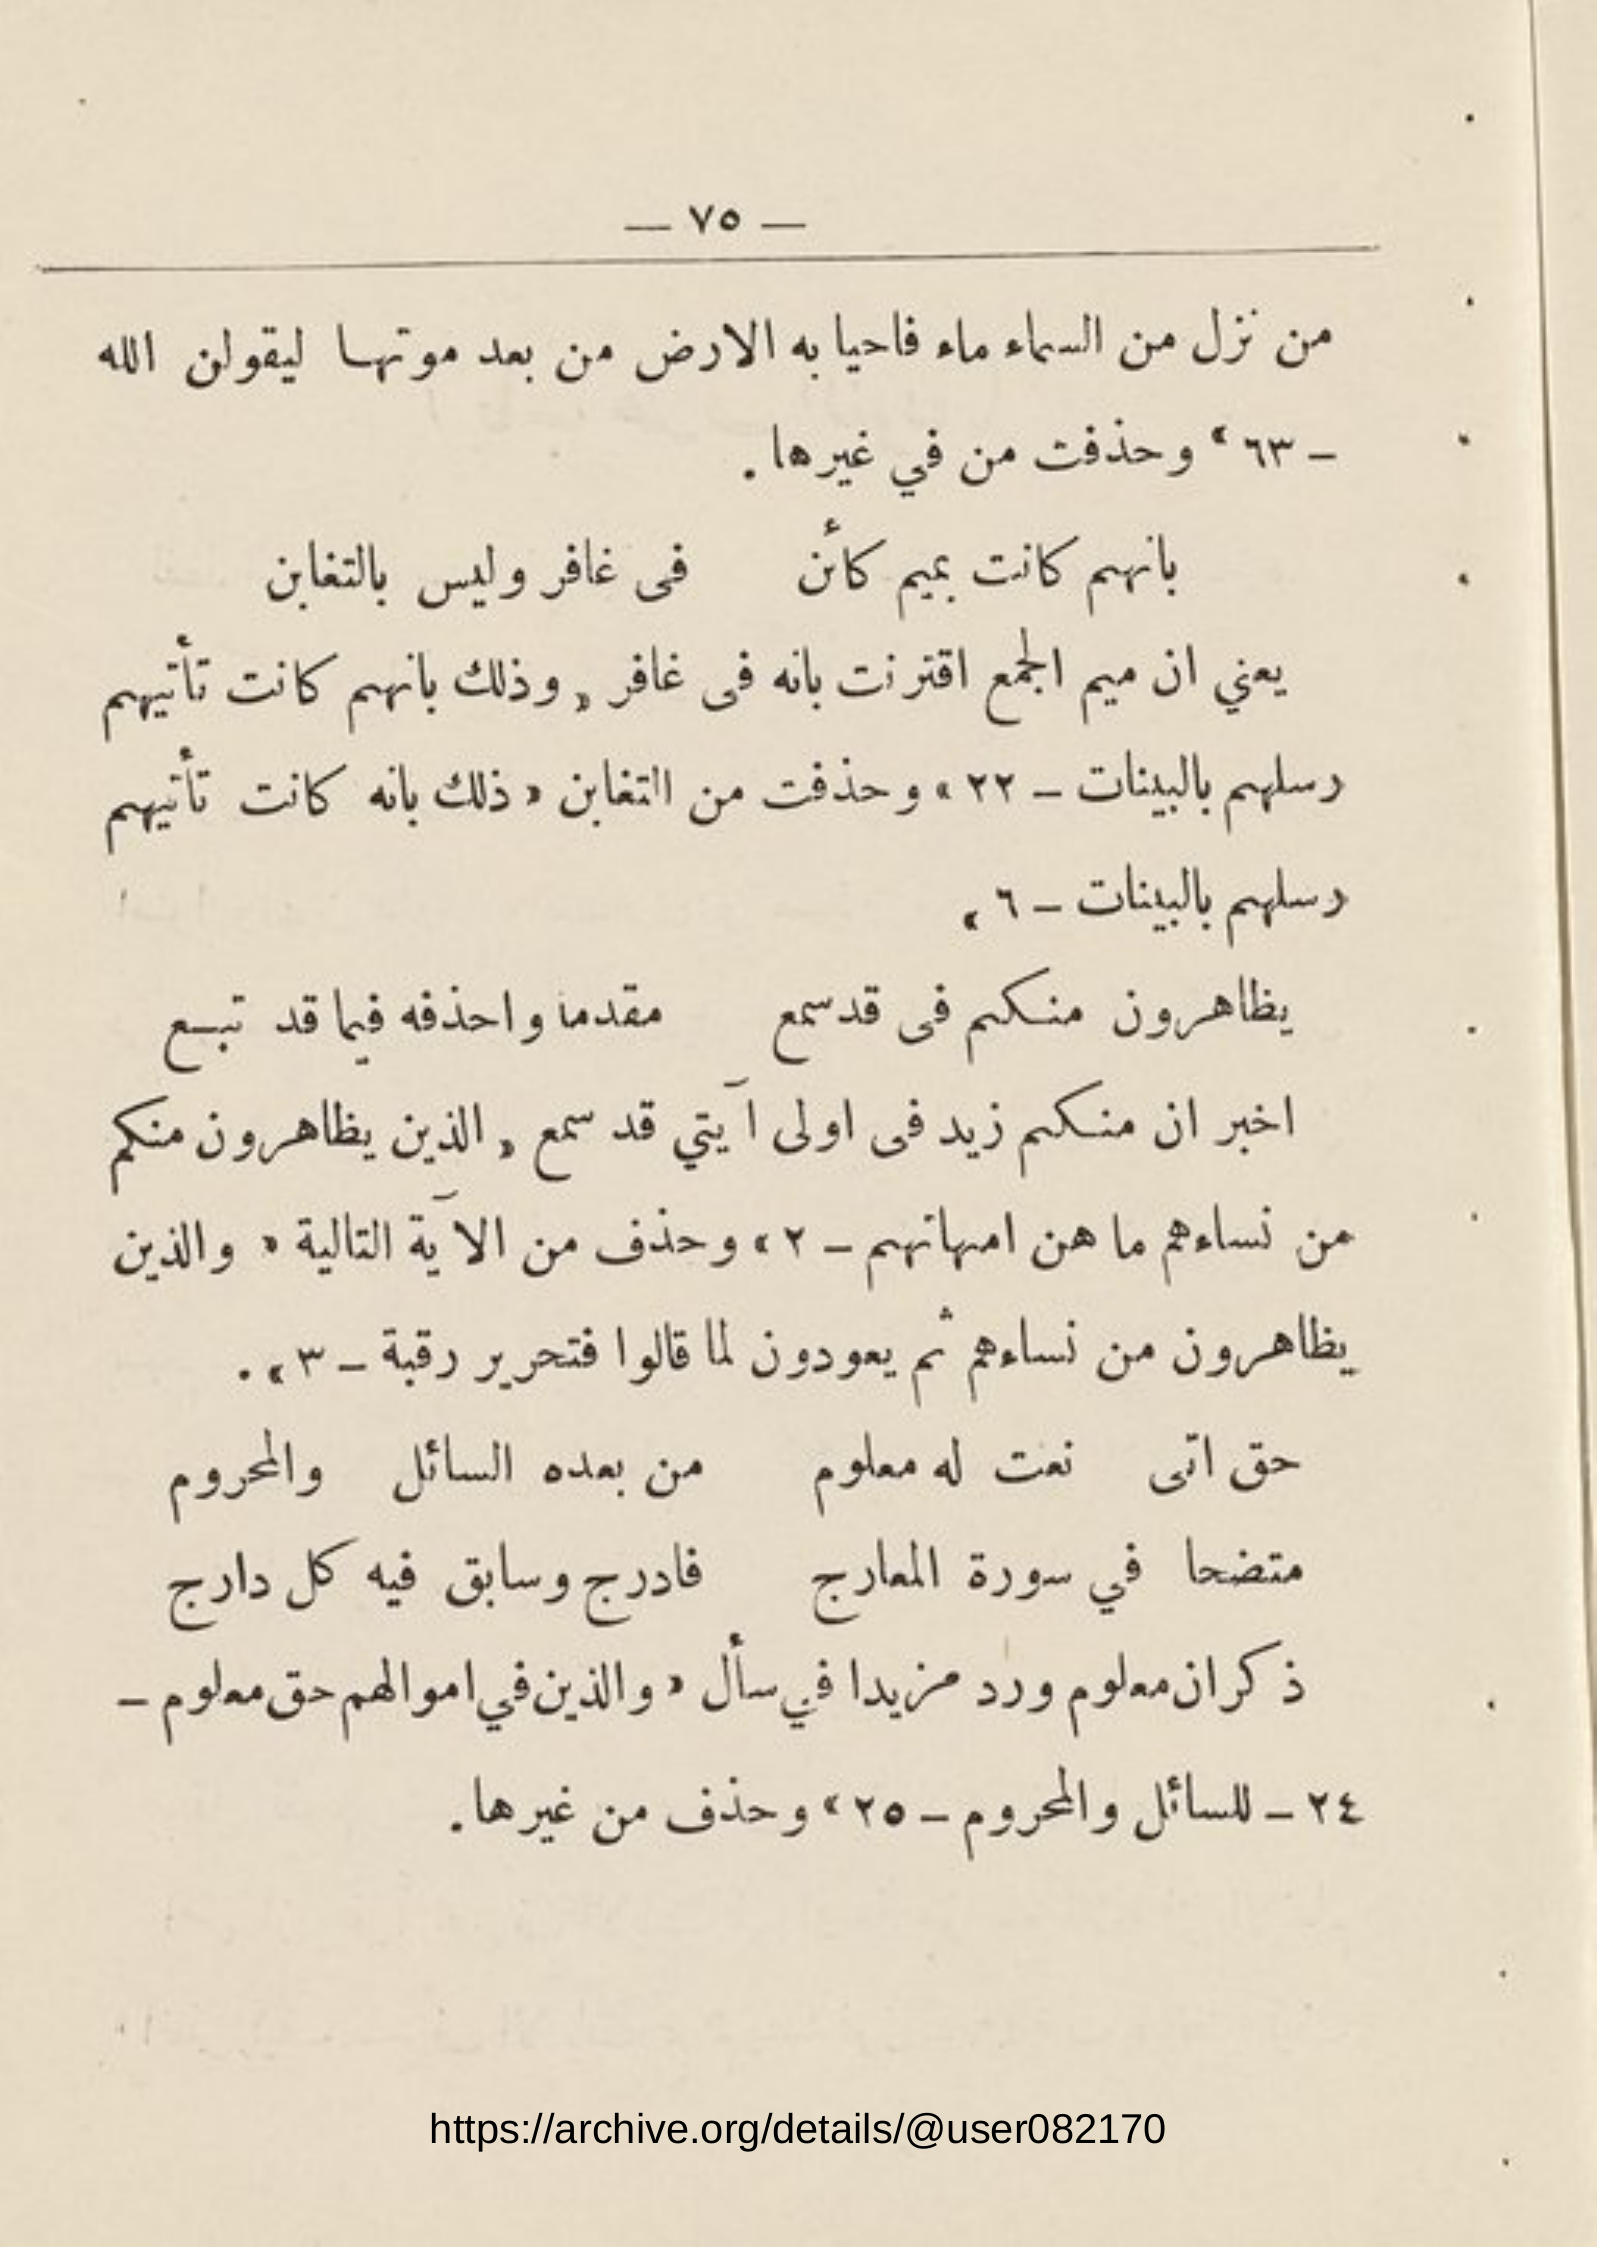 — ٧٥ —
من نزل من السماء ماء فاحيا به الارض من بعد موتها ليقولن الله
– ٦٣ » وحذفت من في غيرها .
بانهم كانت بميم كأئن فى غافر وليس بالتغابن
يعني ان ميم الجمع اقترنت بانه فى غافر « وذلك بانهم كانت تأتيهم
رسلهم بالبينات – ٢٢ » وحذفت من التغابن « ذلك بانه كانت تأتيهم
رسلهم بالبينات – ٦ »
يظاهرون منكم فى قد سمع مقدما واحذفه فيما قد تبع
اخبر ان منكم زيد فى اولى آيتي قد سمع « الذين يظاهرون منكم
من نساءهم ما هن امهاتهم – ٢ » وحذف من الآية التالية « والذين
يظاهرون من نساءهم ثم يعودون لما قالوا فتحرير رقبة – ٣ » .
حق اتى نعت له معلوم من بعده السائل والمحروم
متضحا في سورة المعارج فادرج وسابق فيه كل دارج
ذكر ان معلوم ورد مزيدا في سأل « والذين في اموالهم حق معلوم –
٢٤ – للسائل والمحروم – ٢٥ » وحذف من غيرها .
https://archive.org/details/@user082170